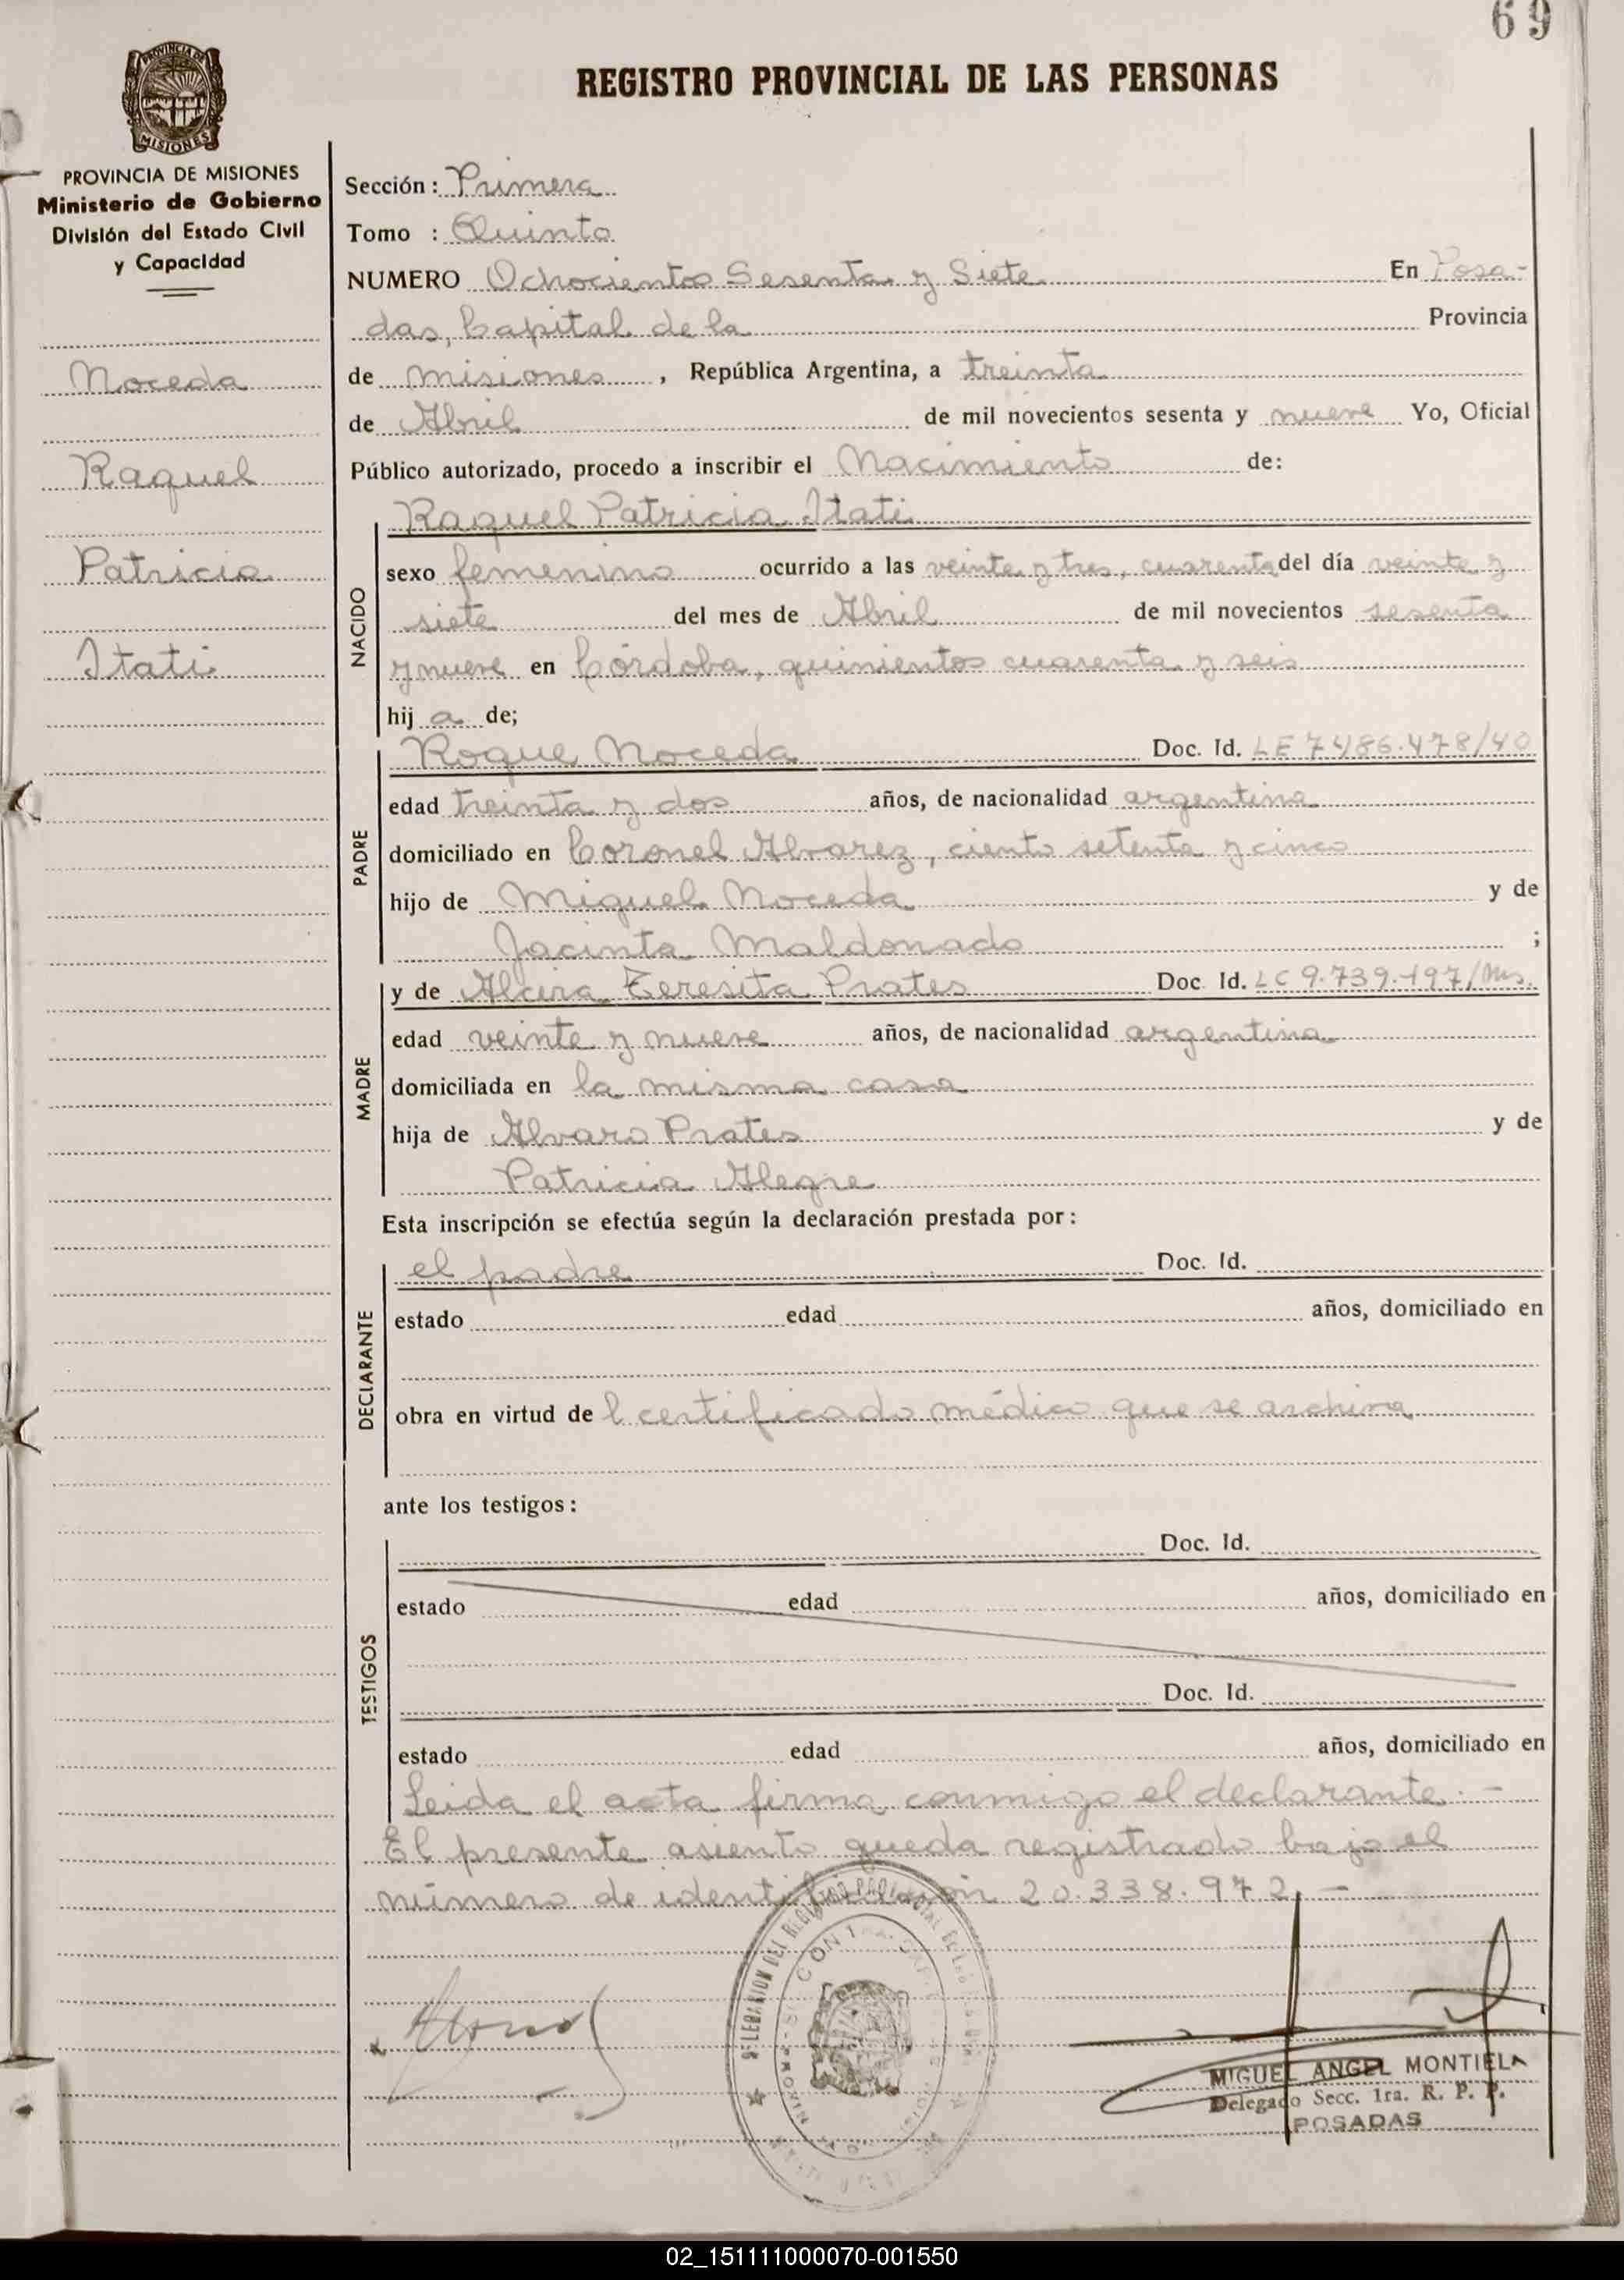 69
PROVINCIA DE
MISIONES
REGISTRO PROVINCIAL DE LAS PERSONAS
PROVINCIA DE MISIONES
Ministerio de Gobierno
División del Estado Civil
y Capacidad
Noceda
Raquel
Patricia
Itati
Sección: Primera
Tomo : Quinto
NUMERO Ochocientos Sesenta y Siete En Posa-
das, Capital de la Provincia
de Misiones, República Argentina, a treinta
de Abril de mil novecientos sesenta y nueve Yo, Oficial
Público autorizado, procedo a inscribir el Nacimiento de:
NACIDO
Raquel Patricia Itati
sexo femenino ocurrido a las veinte y tres, cuarenta del día veinte y
siete del mes de Abril de mil novecientos sesenta
y nueve en Córdoba, quinientos cuarenta y seis
hij a de;
PADRE
Roque Noceda Doc. Id. LE 7486.478/40
edad treinta y dos años, de nacionalidad argentina
domiciliado en Coronel Alvarez, ciento setenta y cinco
hijo de Miguel Noceda y de
Jacinta Maldonado ;
MADRE
y de Alcira Teresita Prates Doc. Id. LC 9.739.197/Ms.
edad veinte y nueve años, de nacionalidad argentina
domiciliada en la misma casa
hija de Alvaro Prates y de
Patricia Alegre
Esta inscripción se efectúa según la declaración prestada por:
DECLARANTE
el padre Doc. Id.
estado edad años, domiciliado en
obra en virtud de l certificado médico que se archiva
ante los testigos:
TESTIGOS
Doc. Id.
estado edad años, domiciliado en
Doc. Id.
estado edad años, domiciliado en
Leida el acta firma conmigo el declarante.-
El presente asiento queda registrado bajo el
número de identificación 20.338.972.-
MIGUEL ANGEL MONTIEL
Delegado Secc. 1ra. R. P. P.
POSADAS
02_151111000070-001550